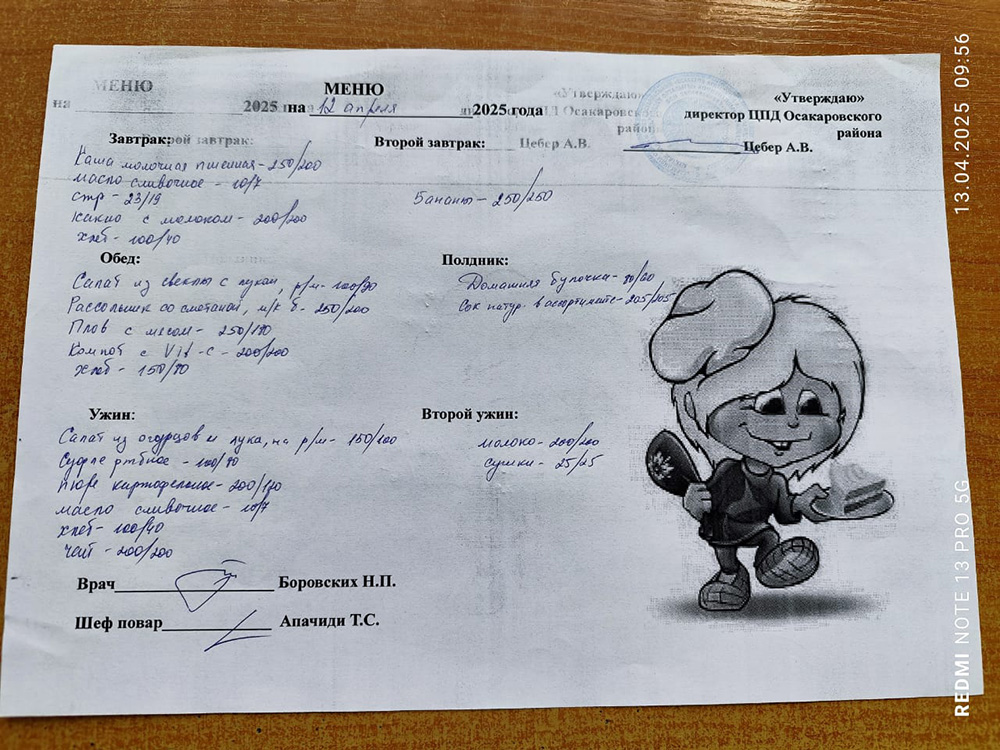 МЕНЮ
МЕНЮ
на 2025 на 12 апреля 2025 года
«Утверждаю»
«Утверждаю»
директор ЦПД Осакаровского
района
ЦПД Осакаровского
района
Цебер А.В.
Цебер А.В.
Завтрак:
Второй завтрак:
Каша молочная пшенная - 250/200
масло сливочное - 10/7
сыр - 23/19
какао с молоком - 200/200
хлеб - 100/40
Второй завтрак:
Бананы - 250/250
Обед:
Салат из свеклы с луком, р/м - 100/90
Рассольник со сметаной, м/к б - 250/200
Плов с мясом - 250/170
Компот с Vit-C - 200/200
хлеб - 150/80
Полдник:
Домашняя булочка - 80/60
Сок натур. в ассортименте - 205/205
Ужин:
Салат из огурцов и лука, на р/м - 150/100
Суфле рыбное - 100/70
пюре картофельное - 200/170
масло сливочное - 10/7
хлеб - 100/40
чай - 200/200
Второй ужин:
молоко - 200/200
сушки - 25/25
Врач Боровских Н.П.
Шеф повар Апачиди Т.С.
13.04.2025 09:56
REDMI NOTE 13 PRO 5G